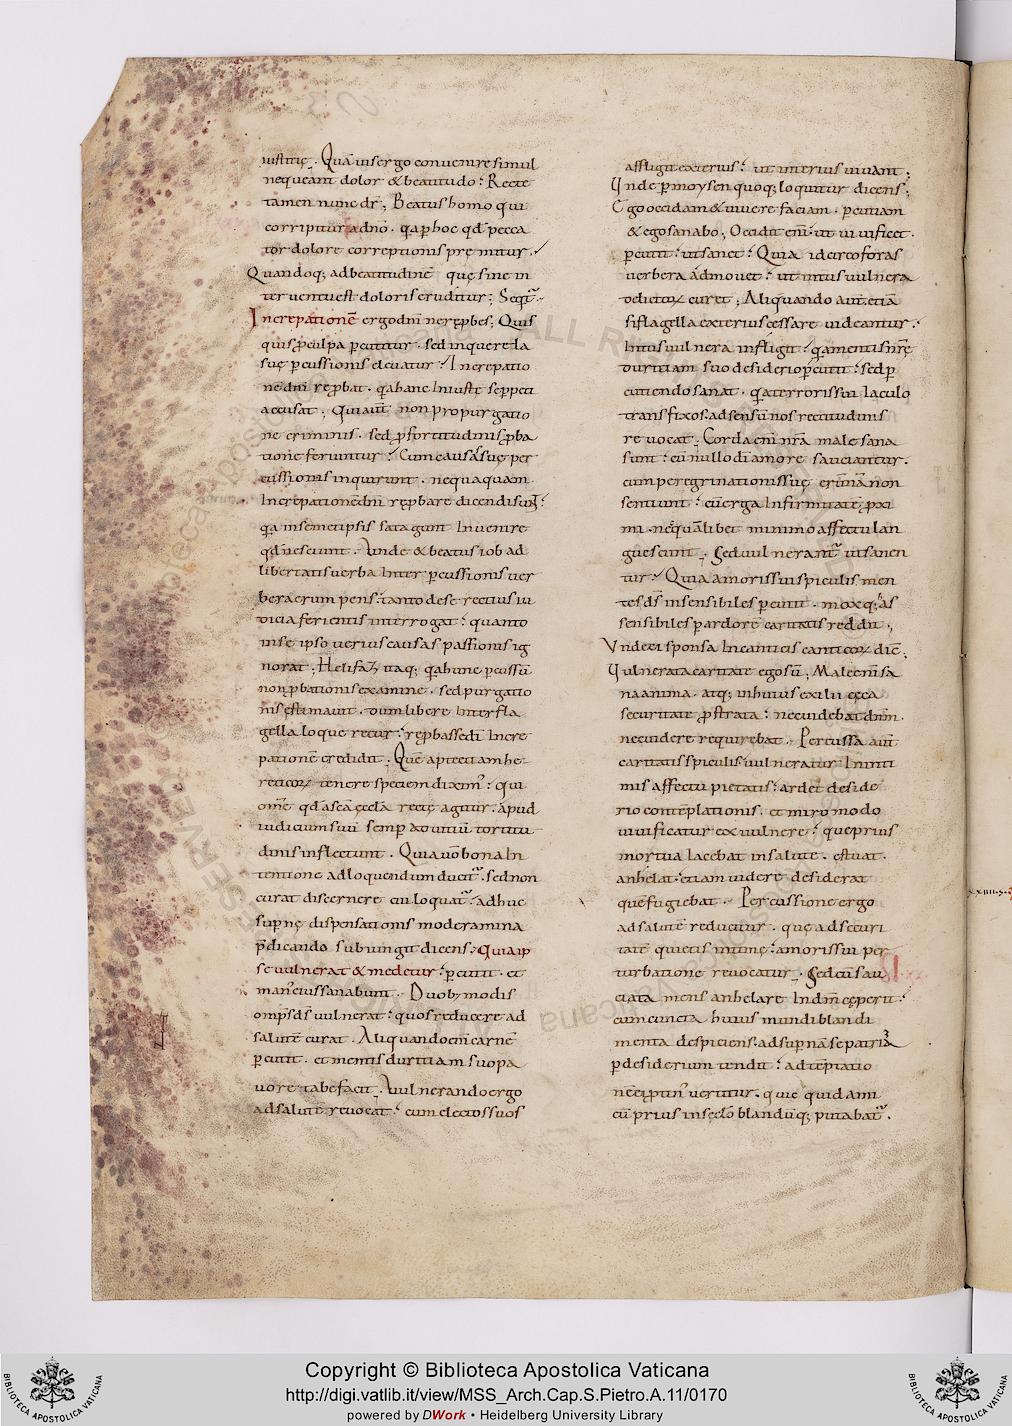 iustitię. Qua in se ergo convenire simul
nequeant dolor & beatitudo? Recte
tamen nunc dr; Beatus homo qui
corripitur a dno. qa p hoc qd pecca
tor dolore correptionis premitur.
Quandoq; ad beatitudinē quę sine in
terventu est doloris eruditur; Seqt.
Increpationē ergo dni ne repbes; Quis
quis p culpa pcutitur. sed in querela
suę pcussionis elevatur? Increpatio
nē dni reprobat. qa hanc iniuste se ppeti
accusat. Qui aut non pro purgatio
ne criminis. sed p fortitudinis pba
tione feriuntur? Cum causas suę per
cussionis inquirunt. nequaquam
Increpationē dni repbare dicendi sunt?
qa in semetipsis satagunt Invenire
qd nesciunt. Unde & beatus iob ad
libertatis verba Inter pcussionis ver
bera erumpens. tanto de se rectius iu
dicia ferientis interrogat? quanto
in se ipso verius causas passionis ig
norat; Helifaz itaq; qa hunc pcussū
non pbationis examine. sed purgatio
nis estimavit. dum libere Inter fla
gella loqueretur? repbasse dni Incre
pationē credidit. Quē apte etiam he
reticorum tenere speciem diximus? qui
omē qd a scā eccla recte agitur. apud
iudicium suū semp ad vitiū tortitu
dinis inflectunt. Quia vo bona In
tentione ad loquendum ducitur. sed non
curat discernere cui loquatur? adhuc
supnę dispensationis moderamina
pdicando subiungit dicens? Quia ip
se vulnerat & medetur? pcutit. et
manus eius sanabunt. Duob; modis
omps ds vulnerat? quos reducere ad
salutē curat. Aliquando enim carnē
pcutit. et mentis duritiam suo pa
vore tabefacit. Vulnerando ergo
ad salutē revocat? cum electos suos
affligit exterius? ut interius vivant;
Unde p moysen quoq; loquitur dicens;
Ego occidam & vivere faciam. pcutiam
& ego sanabo; Occidit enī? ut vivificet.
pcutit? ut sanet? Quia idcirco foras
verbera admovet? ut intus vulnera
delictorum curet; Aliquando aut etiā
si flagella exterius cessare videantur.
Intus vulnera infligit? qa mentis nrę
duritiam suo desiderio pcutit? sed p
cutiendo sanat. qa terroris sui Iaculo
transfixos ad sensū nos rectitudinis
revocat; Corda enī nra male sana
sunt? cū nullo dī amore sauciantur.
cum peregrinationis suę erumnā non
sentiunt? cū erga Infirmitatē pxi
mi. nec quālibet minimo affectu lan
guescunt. Sed vulnerant ut sanen
tur? Quia amoris sui spiculis men
tes ds insensibiles pcutit. moxq; has
sensibiles p ardorē caritatis reddit;
Unde & sponsa In canticis canticorum dic;
Vulnerata caritate ego sū; Male enī sa
na anima. atq; in huius exilii cęca
securitate pstrata? nec videbat dnm.
nec videre requirebat. Percussa aut
caritatis spiculis. vulneratur Ininti
mis affectu pietatis? ardet deside
rio contēplationis. et miro modo
vivificatur ex vulnere? que prius
mortua Iacebat in salute. estuat.
anhelat. etiam videre desiderat
que fugiebat. Percussione ergo
ad salutē reducitur. quę ad securi
tatē quietis intimę? amoris sui per
turbatione revocatur. Sed cū sau
ciata mens anhelare In dm cęperit?
cum cuncta huius mundi blandi
menta despiciens. ad supnā se patriā
p desiderium tendit? ad tēptatio
nē ei ptinus vertitur. que quid ami
cū prius in seclo blandūq; putabatur.
xxiiii.
Copyright © Biblioteca Apostolica Vaticana
http://digi.vatlib.it/view/MSS_Arch.Cap.S.Pietro.A.11/0170
powered by DWork • Heidelberg University Library
BIBLIOTECA APOSTOLICA VATICANA
BIBLIOTECA APOSTOLICA VATICANA